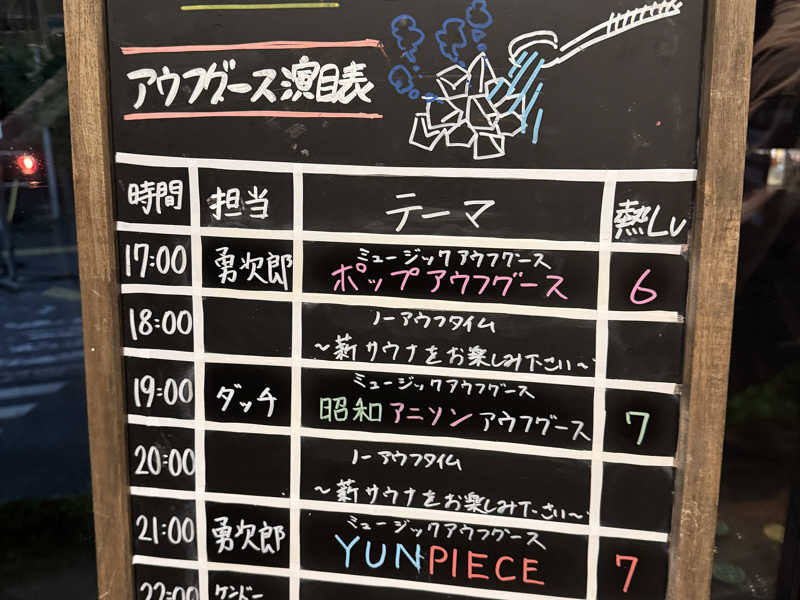 アウフグース演目表
時間 担当 テーマ 熱Lv
17:00 勇次郎 ミュージックアウフグース
ポップアウフグース 6
18:00 ノーアウフタイム
〜薪サウナをお楽しみ下さい〜
19:00 ダッチ ミュージックアウフグース
昭和アニソンアウフグース 7
20:00 ノーアウフタイム
〜薪サウナをお楽しみ下さい〜
21:00 勇次郎 ミュージックアウフグース
YUNPIECE 7
22:00 ケンドー